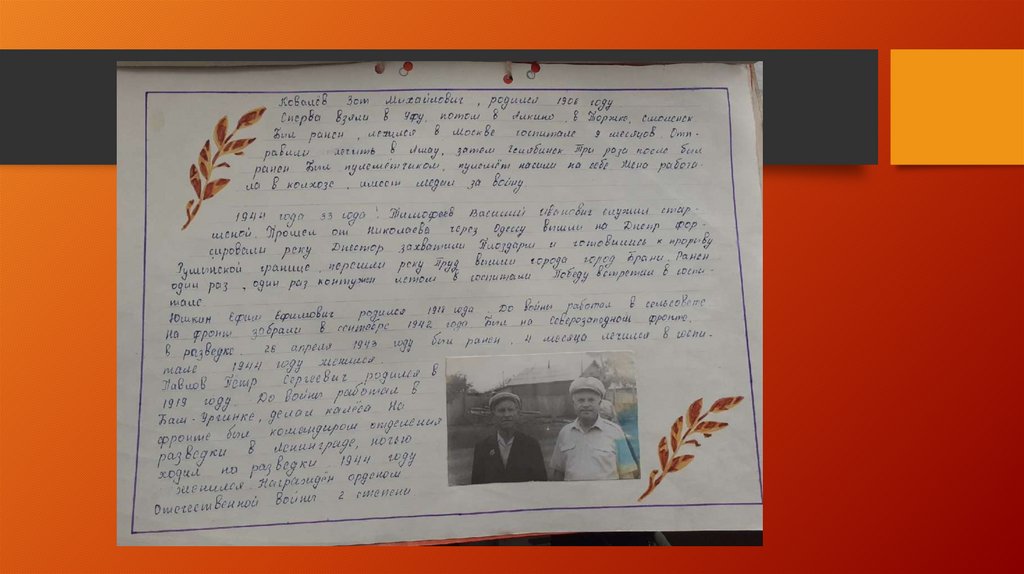 Ковалёв Зот Михайлович, родился 1906 году
Сперва взяли в Уфу, потом в Алкино, в Торжке, Смоленск
Был ранен, лежился в Москве госпитале 9 месяцев. Отп-
равили лечить в Ашау, затем Челябинск Три раза после был
ранен Был пулемётчиком, пулемёт насили на себе Жена работа-
ла в колхозе, имеет медали за войну
1944 года 33 года! Тимофеев Василий Иванович служил стар-
шеной. Прошел от Николаева через Одессу вышли на Днепр фор-
сировали реку Днестор захватили Плоздарм и готовились к прорыву
Румынской границе, перешли реку Пруд вышли города город Брани. Ранен
один раз, один раз контужен летом в госпитали Победу встретил в госпи-
тале.
Юшкин Ефим Ефимович родился 1918 года. До войны работал в сельсовете
На фронт забрали в сентябре 1942 года Был на Северозападном фронте,
в разведке. 26 апреля 1943 году был ранен, 4 месяца лечился в госпи-
тале 1944 году женился.
Павлов Петр Сергеевич родился в
1919 году. До войны работал в
Баш-Ургинке, делал калёса На
фронте был командиром отделения
разведки в Ленинграде, ночью
ходил на разведки 1944 году
женился. Награждён орденом
Отечественной Войны 2 степени